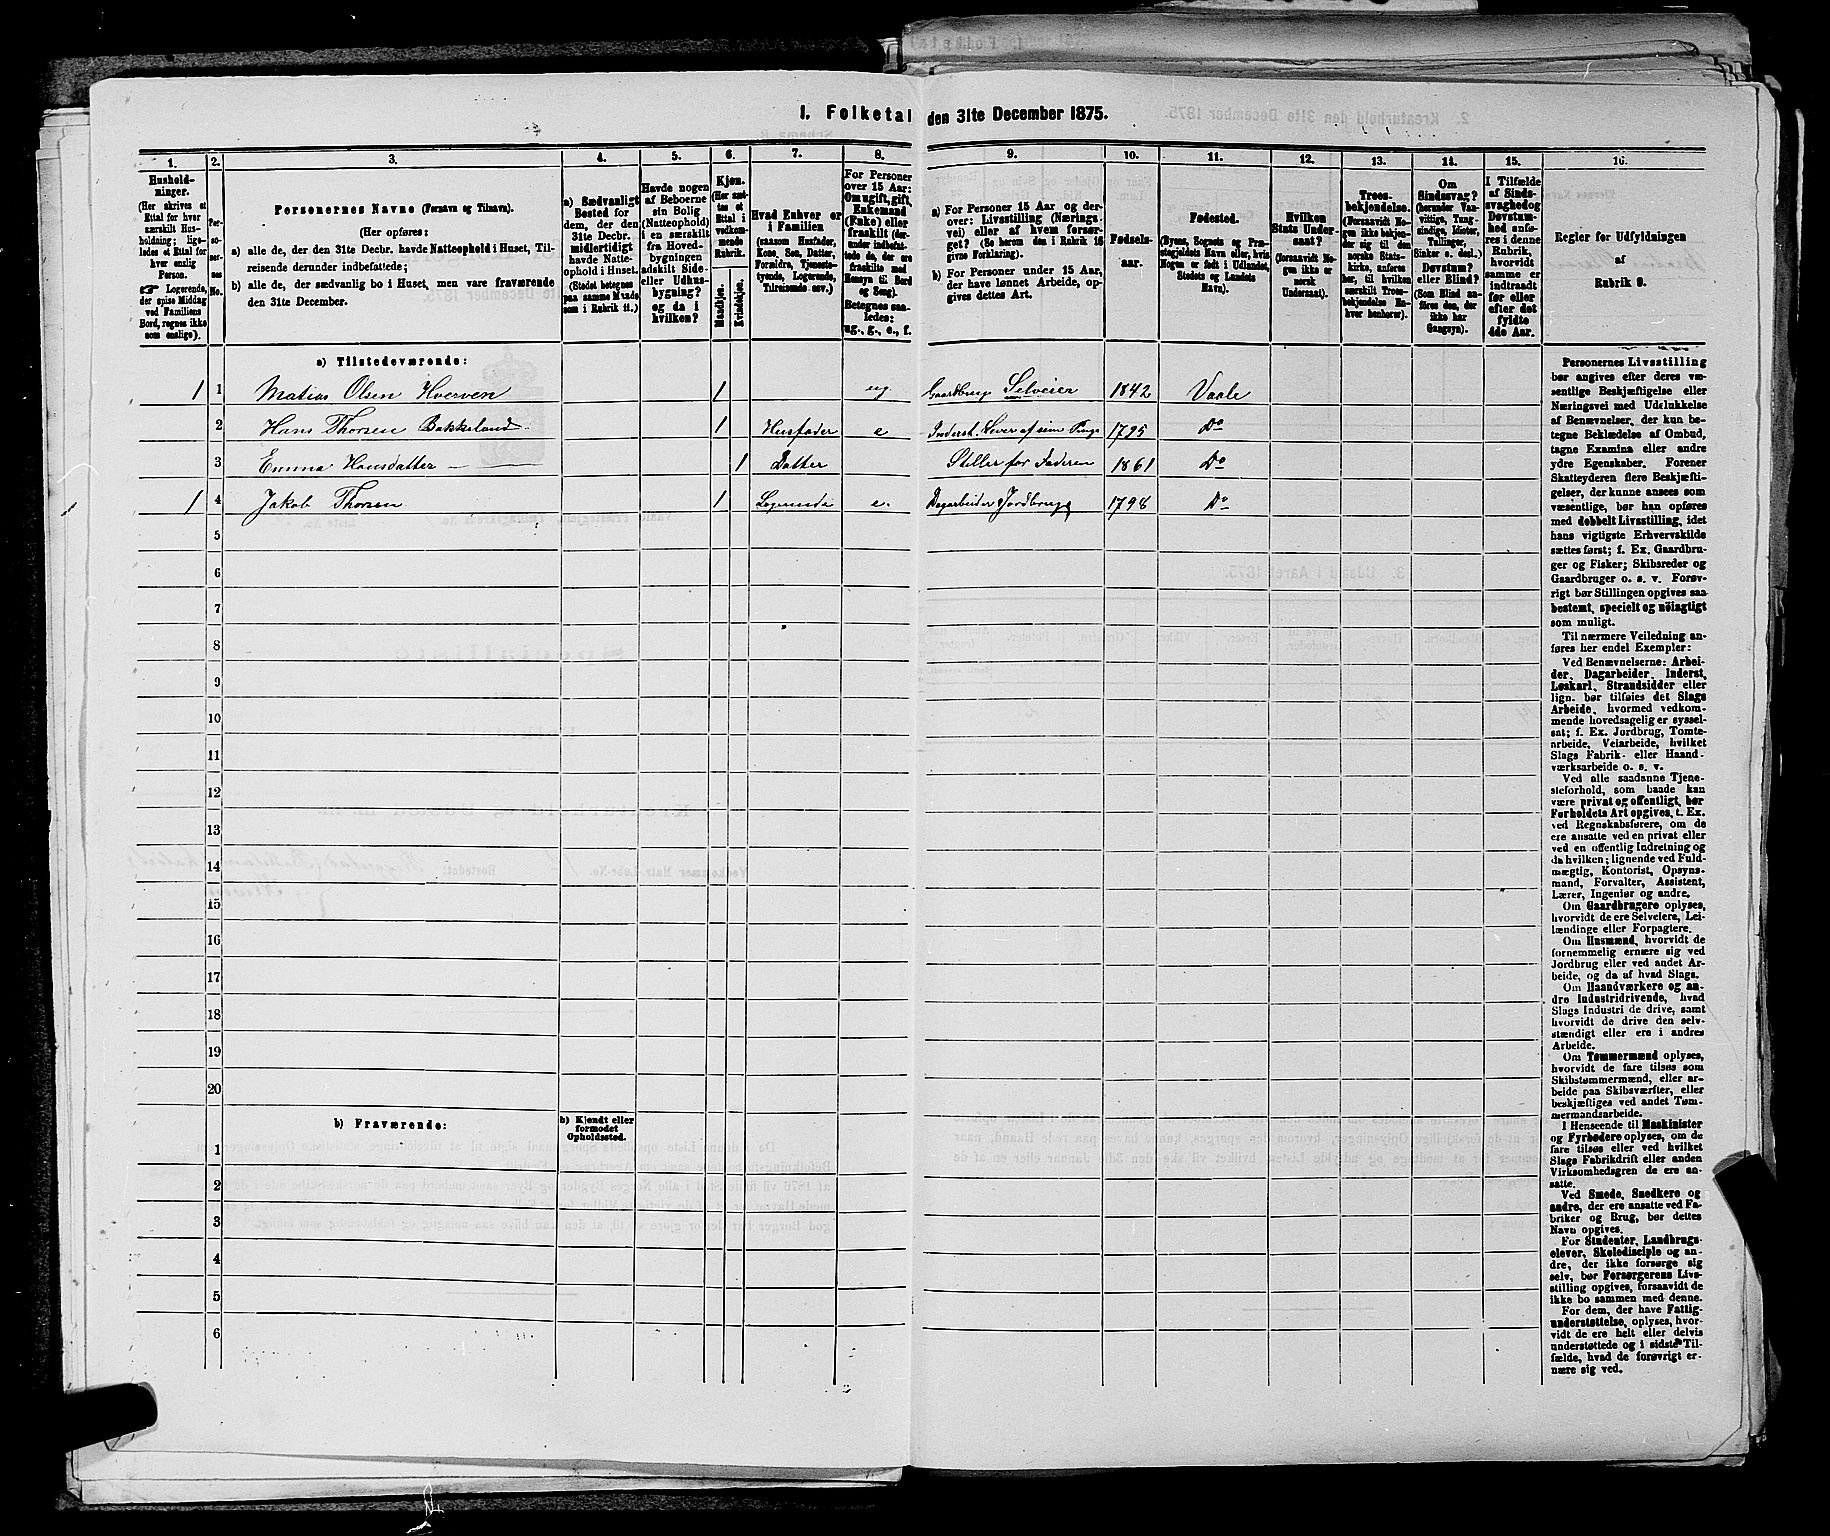 1. Folketal den 31te December 1875.
1. 2. 3. 4. 5. 6. 7. 8. 9. 10. 11. 12. 13. 14. 15. 16.
Husholdninger.
(Her skrives et
Ettal for hver
særskilt Husholdning;
ligeledes et Ettal for
hver enslig
Person.
☞ Logerende,
der spise Middag
ved Familiens
Bord, regnes ikke
som enslige).
Personernes No.
Personernes Navne (Fornavn og Tilnavn).
(Her opføres:
a) alle de, der den 31te Decbr. havde Natteophold i Huset, Tilreisende derunder indbefattede;
b) alle de, der sædvanlig bo i Huset, men vare fraværende
den 31te December.
a) Sædvanligt
Bosted for
dem, der den
31te Decbr.
midlertidigt
havde Natteophold i Huset.
(Stedet betegnes
paa samme Maade
som i Rubrik 11.)
Havde nogen
af Beboerne
sin Bolig
(Natteophold)
i en særskilt
fra Hovedbygningen
adskilt Side-
eller Udhusbygning?
og da i
hvilken?
Kjøn.
(Her sættes et
Ettal i
vedkommende
Rubrik.
Mandkjøn.
Kvindekjøn.
Hvad Enhver er
i Familien
(saasom Husfader,
Kone, Søn, Datter,
Forældre, Tjenestetyende, Logerende,
Tilreisende osv.)
For Personer
over 15 Aar:
Om ugift, gift,
Enkemand
(Enke) eller
fraskilt (derunder indbefattede de, der ere
fraskilte med
Hensyn til Bord
og Seng).
Betegnes saaledes:
ug., g., e., f.
a) For Personer 15 Aar og derover: Livsstilling (Næringsvei) eller af hvem forsørget? (Se herom den i Rubrik 16
givne Forklaring).
b) For Personer under 15 Aar,
der have lønnet Arbeide, opgives dettes Art.
Fødselsaar.
Fødested.
(Byens, Sognets og Præstegjeldets Navn eller, hvis
Nogen er født i Udlandet,
Stedets og Landets
Navn).
Hvilken
Stats Undersaat?
(forsaavidt Nogen ikke er
norsk
Undersaat).
Troesbekjendelse.
(Forsaavidt Nogen ikke bekjender sig til den
norske Statskirke, anføres
her, til hvilken
særskilt Troesbekjendelse Enhver henhører).
Om
Sindssvag?
(herunder Vanvittige, Tungsindige, Idioter,
Tullinger,
Sinker o. desl.)
Døvstum?
eller Blind?
(Som Blind anføres den, der
ikke har
Gangsyn).
I Tilfælde
af Sindssvaghed og
Døvstumhed, anføres i denne
Rubrik,
hvorvidt
samme er
indtraadt
før eller
efter det
fyldte
4de Aar.
Regler for Udfyldningen
af
Rubrik 9.
a) Tilstedeværende:
1 1 Matias Olsen Hverven 1 ug. Gaardbruger Selveier 1842 Vaale
2 Hans Thorsen Bakkeland 1 Husfader e Inderst. Lever af sine Penge 1795 Do
3 Emma Hansdatter — 1 Datter Steller for Faderen 1861 Do
1 4 Jakob Thorsen 1 Logerende e. Dagarbeider Jordbrug 1798 Do
5
6
7
8
9
10
11
12
13
14
15
16
17
18
19
20
b) Fraværende:
b) Kjendt eller
formodet
Opholdssted.
1
2
3
4
5
6
Personernes Livsstilling
bør angives efter deres væsentlige Beskjæftigelse eller
Næringsvei med Udelukkelse
af Benævnelser, der kun betegne Beklædelse af Ombud,
tagne Examina eller andre
ydre Egenskaber. Forener
Skatteyderen flere Beskjæftigelser, der kunne ansees som
væsentlige, bør han opføres
med dobbelt Livsstilling, idet
hans vigtigste Erhvervskilde
sættes først; f. Ex. Gaardbruger og Fisker; Skibsreder og
Gaardbruger o. s. v. Forøvrigt bør Stillingen opgives saa
bestemt, specielt og nøiagtigt
som muligt.
Til nærmere Veiledning anføres her endel Exempler:
Ved Benævnelserne: Arbeider, Dagarbeider, Inderst,
Løskarl, Strandsidder eller
lign. bør tilføies det Slags
Arbeide, hvormed vedkommende hovedsagelig er sysselsat; f. Ex. Jordbrug, Tomtearbeide, Veiarbeide, hvilket
Slags Fabrik- eller Haandværksarbeide o. s. v.
Ved alle saadanne Tjenesteforhold, som baade kan
være privat og offentligt, bør
Forholdets Art opgives, t. Ex.
ved Regnskabsførere, om de
ere ansatte ved en privat eller
ved en offentlig Indretning og
da hvilken; lignende ved Fuldmægtig, Kontorist, Opsynsmand, Forvalter, Assistent,
Lærer, Ingeniør og andre.
Om Gaardbrugere oplyses,
hvorvidt de ere Selveiere, Leilændinge eller Forpagtere.
Om Husmænd, hvorvidt de
fornemmelig ernære sig ved
Jordbrug eller ved andet Arbeide, og da af hvad Slags.
Om Haandværkere og andre Industridrivende, hvad
Slags Industri de drive, samt
hvorvidt de drive den selvstændigt eller ere i andres
Arbeide.
Om Tømmermænd oplyses,
hvorvidt de fare tilsøs som
Skibstømmermænd, eller arbeide paa Skibsværfter, eller
beskjæftiges ved andet Tømmermandsarbeide.
I Henseende til Maskinister
og Fyrbødere oplyses, om de
fare tilsøs eller ved hvilket
Slags Fabrikdrift eller anden
Virksomhedsgren de ere ansatte.
Ved Smede, Snedkere og
andre, der ere ansatte ved Fabriker og Brug, bør dettes
Navn opgives.
For Studenter, Landbrugselever, Skoledisciple og andre, der ikke forsørge sig
selv, bør Forsørgerens Livsstilling opgives, forsaavidt de
ikke bo sammen med denne.
For dem, der have Fattigunderstøttelse, oplyses, hvorvidt de ere helt eller delvis
understøttede og i sidste Tilfælde, hvad de forøvrigt ernære sig ved.